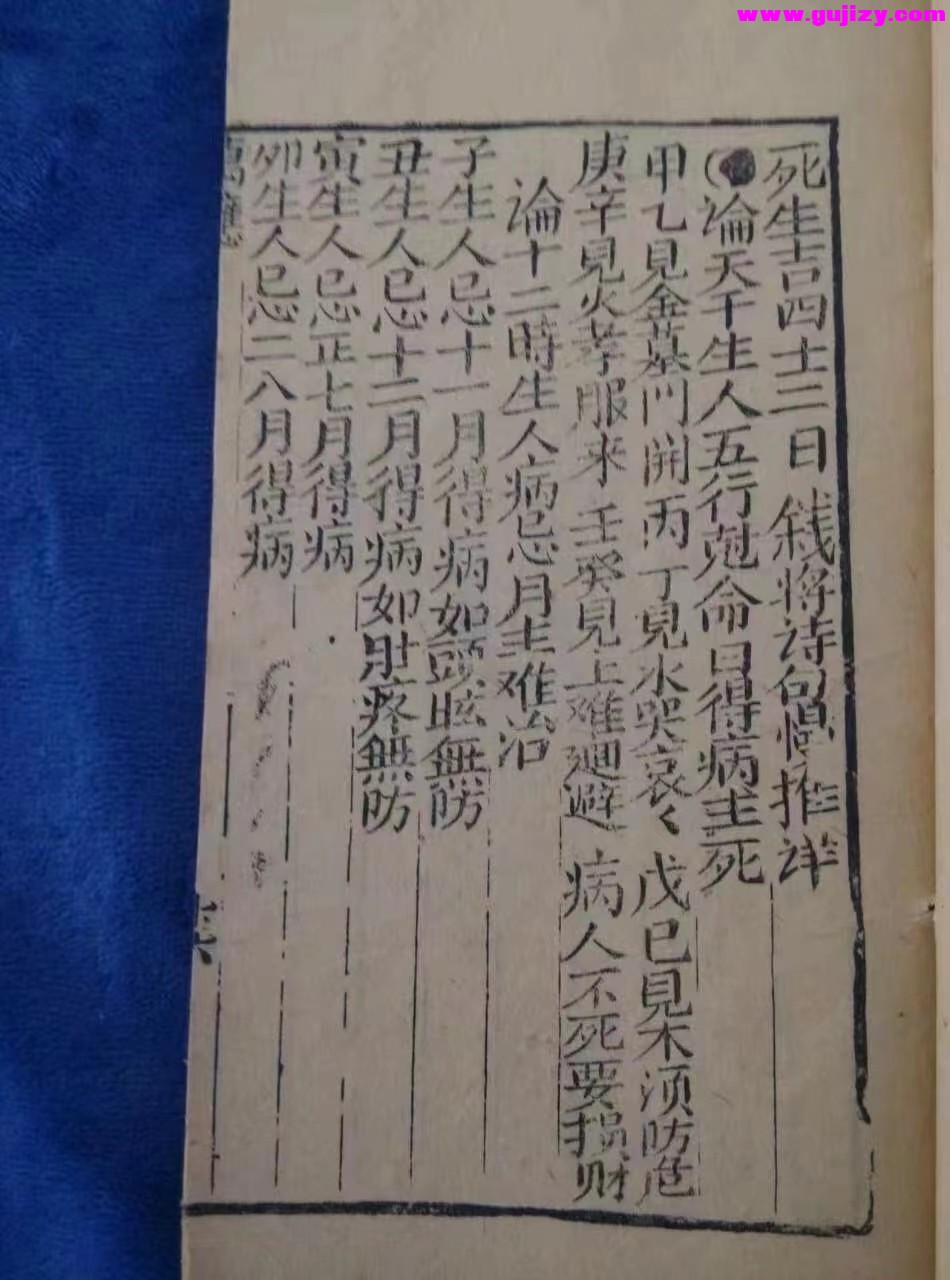 www.gujizy.com
死生吉四十二日 錢将诗句慢推详
論天干生人五行尅命日得病主死
甲乙見金墓门開丙丁見水哭哀々 戊巳見木须防危
庚辛見火孝服来 壬癸見土难廻避 病人不死要损财
論十二時生人病忌月主难治
子生人忌十一月得病如頭眩無防
丑生人忌十二月得病如肚疼無防
寅生人忌正七月得病
卯生人忌二八月得病